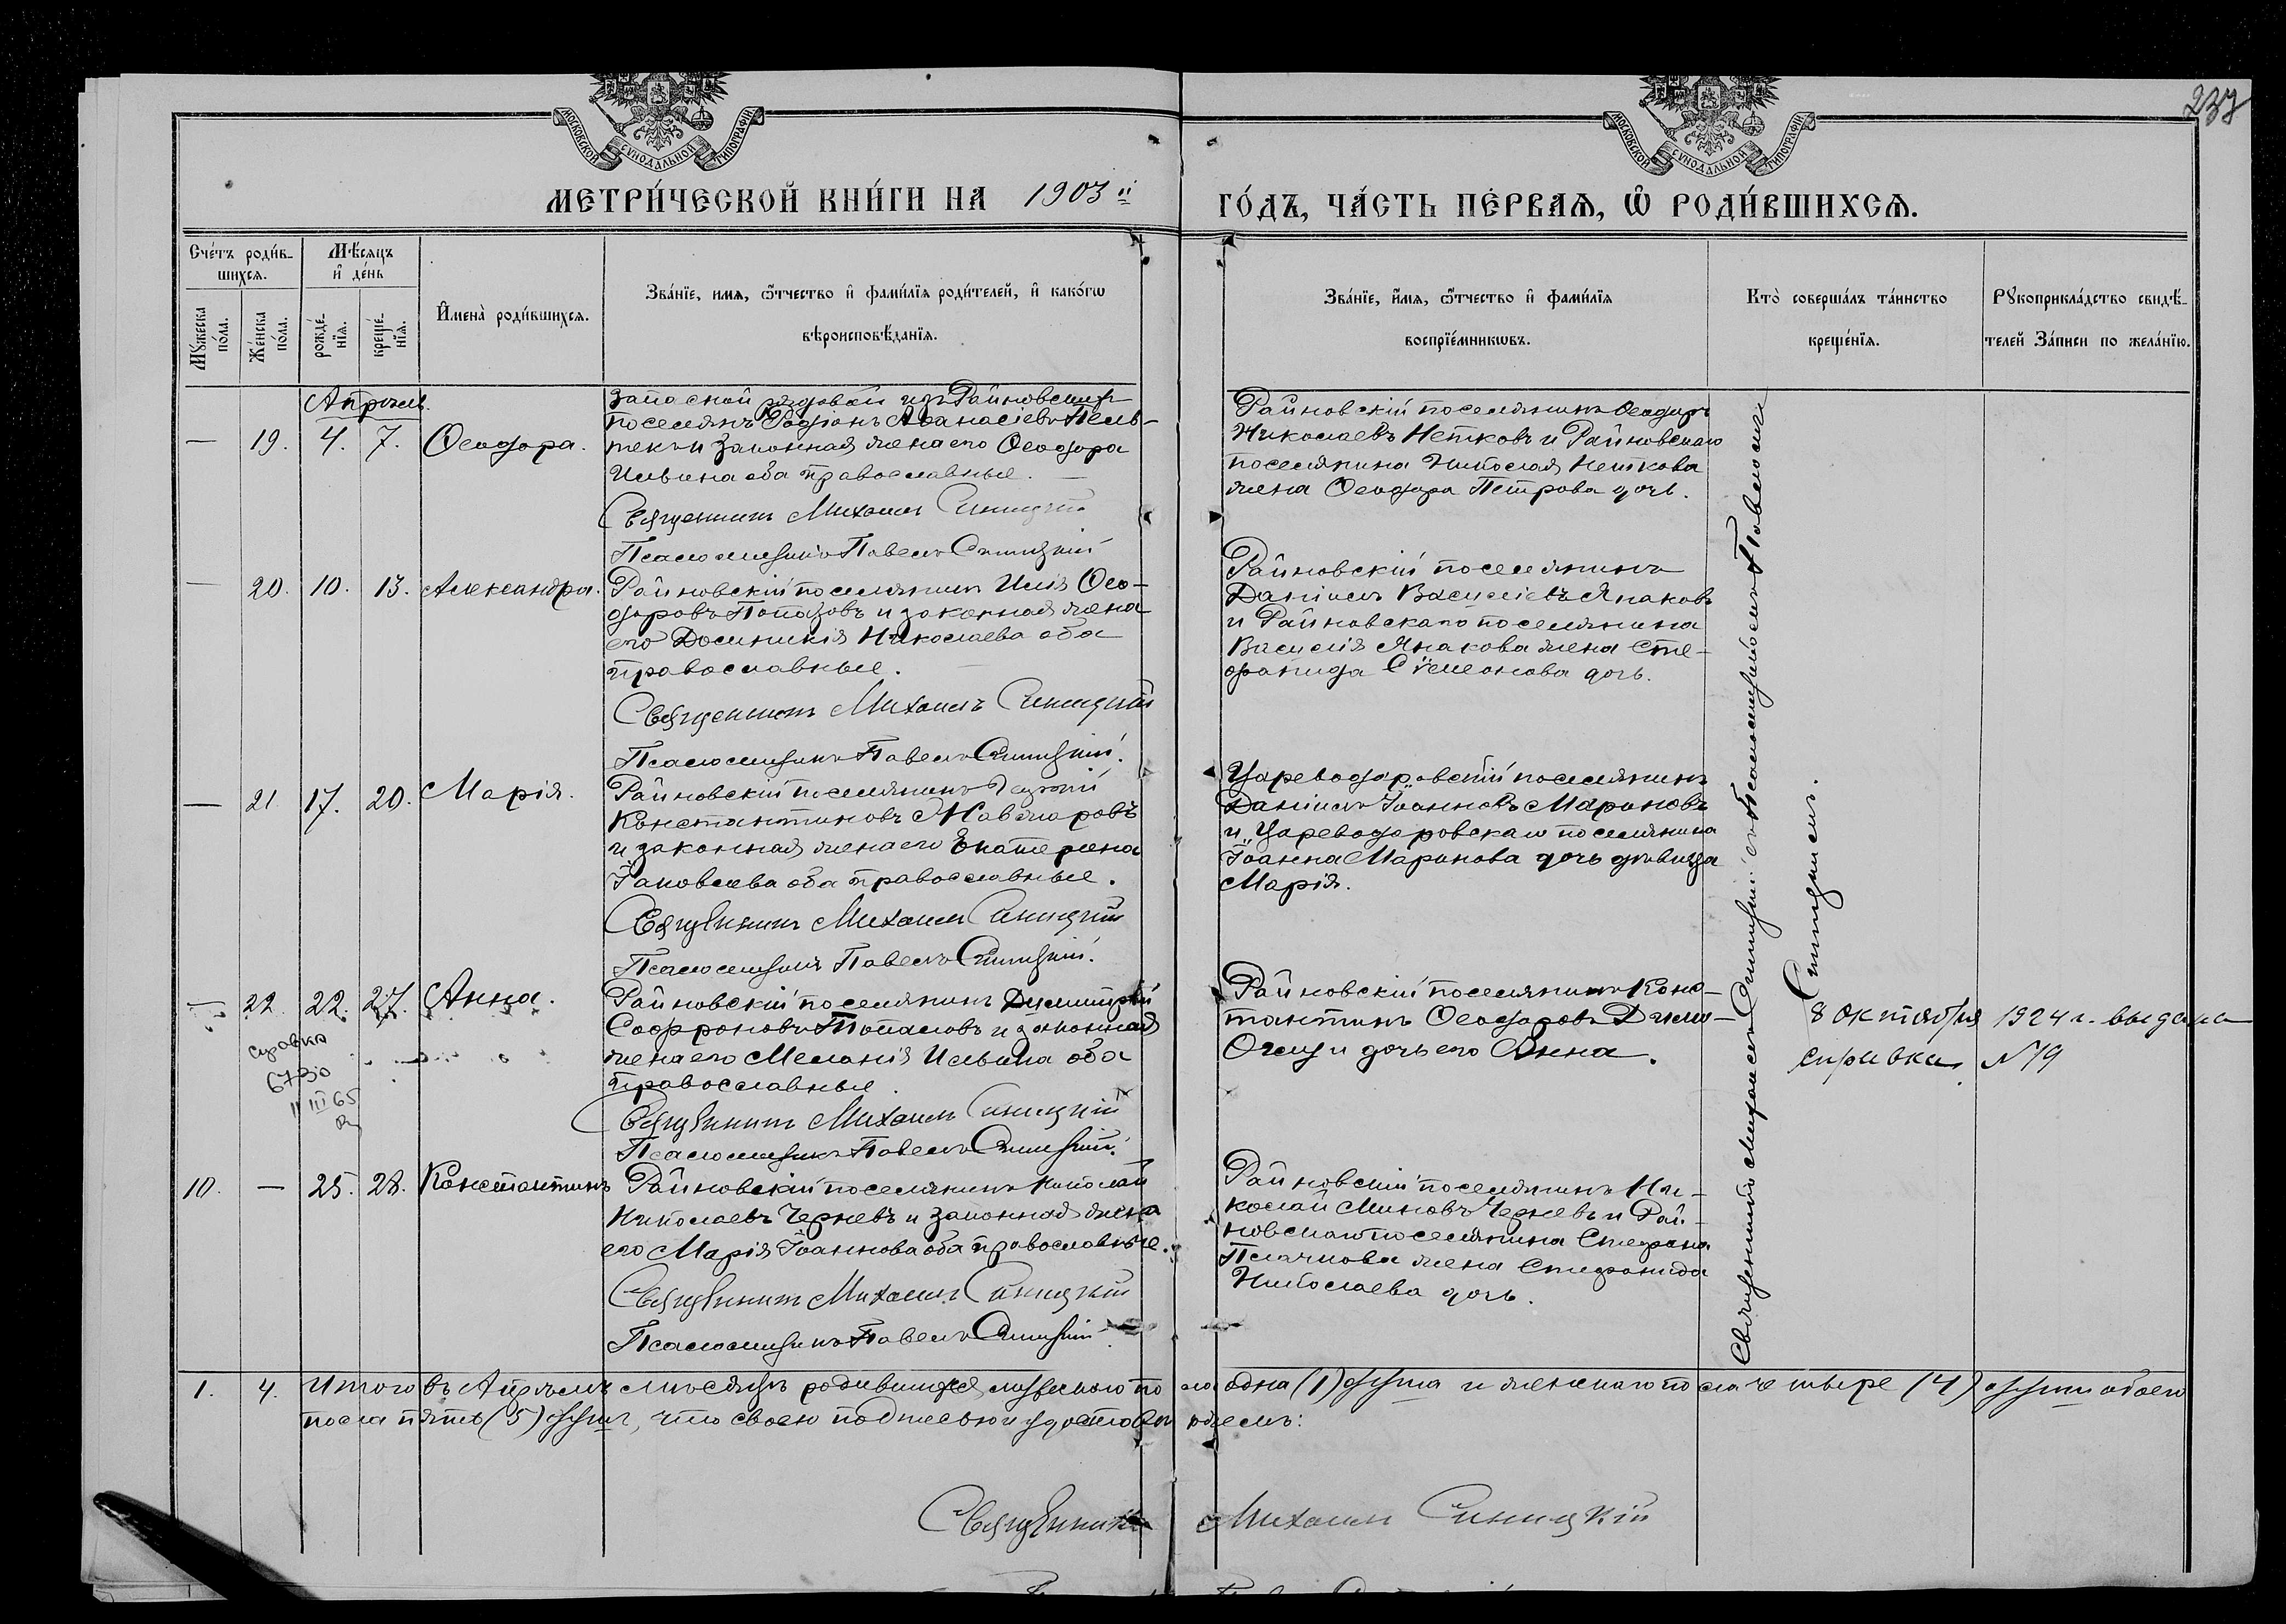 237
МОСКОВСКОЙ СУНОДАЛЬНОЙ ТИПОГРАФІИ.
МОСКОВСКОЙ СУНОДАЛЬНОЙ ТИПОГРАФІИ
МЕТРИ́ЧЕСКОЙ КНИ́ГИ НА 1903й ГО́ДЪ, ЧА́СТЬ ПЕ́РВАѦ, Ѡ РОДИ́ВШИХСѦ.
Сче́тъ роди́в-
шихсѧ.
Мꙋ́жеска
по́ла.
Же́нска
по́ла.
Мѣ́сѧцъ
и҆ де́нь
рожде́-
нїѧ.
креще́-
нїѧ.
И҆мена̀ роди́вшихсѧ.
Зва́нїе, имѧ, ѻ҆́тчество и҆ фами́лїѧ роди́телей, и҆ како́гѡ
вѣроисповѣ́данїѧ.
Зва́нїе, и҆́мѧ, ѻ҆́тчество и҆ фами́лїѧ
воспрїе́мникѡвъ.
Кто̀ соверша́лъ та́инство
креще́нїѧ.
Рꙋкоприкла́дство свидѣ́-
телей За́писи по жела́нїю.
Апрѣль.
— 19. 4. 7. Ѳеодора.
запасной рядовой изъ Райновскихъ
поселянъ Родіонъ Аѳанасіевъ
и законная жена его Ѳеодора
Ильина оба православные. —
Священникъ Михаилъ Синицкій
Псаломщикъ Павелъ Синицкій
Райновскій поселянинъ Ѳеодоръ
Николаевъ Нетковъ и Райновскаго
поселянина Николая Неткова
жена Ѳеодора Петрова дочь.
— 20. 10. 13. Александра.
Райновскій поселянинъ Илія Ѳео-
доровъ Топаловъ и законная жена
его Домникія Николаева оба
православные.
Священникъ Михаилъ Синицкій
Псаломщикъ Павелъ Синицкій.
Райновскій поселянинъ
Даніилъ Василіевъ Янаковъ
и Райновскаго поселянина
Василія Янакова жена Сте-
фанида Сѷмеонова дочь.
— 21 17. 20. Марія.
Райновскій поселянинъ
Константиновъ
и законная жена его Екатерина
Іаковлева оба православные.
Священникъ Михаилъ Синицкій
Псаломщикъ Павелъ Синицкій.
Цареводаровскій поселянинъ
Даніилъ Іоанновъ Мариновъ
и Цареводаровскаго поселянина
Іоанна Маринова дочь дѣвица
Марія.
— 22. 22. 27. Анна.
справка
6730
11 III 65
Райновскій поселянинъ Димитрій
Софроновъ Топаловъ и законная
жена его Меланія Ильина оба
православные.
Священникъ Михаилъ Синицкій
Псаломщикъ Павелъ Синицкій.
Райновскій поселянинъ Конс-
тантинъ Ѳеодоровъ
и дочь его Анна.
8 октября 1924 г. выдана
справка N 19
10. — 25. 28. Константинъ
Райновскій поселянинъ Николай
Николаевъ Черневъ и законная жена
его Марія Іоаннова оба православные.
Священникъ Михаилъ Синицкій
Псаломщикъ Павелъ Синицкій
Райновскій поселянинъ Ни-
колай Миновъ Черневъ и Рай-
новскаго поселянина Стефана
жена Стефанида
Николаева дочь.
Священникъ Михаилъ Синицкій съ Псаломщикомъ Павломъ
Синицкимъ.
1. 4. Итого въ Апрѣлѣ мѣсяцѣ родившихся мужескаго пола одна (1) душа и женскаго пола четыре (4) души обоего
пола пять (5) душъ, что своею подписью и удостовѣряемъ:
Священникъ Михаилъ Синицкій